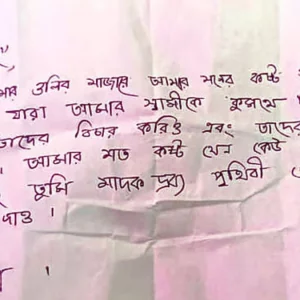 মার ওলির মাজারে আমার মনের কষ্ট
যারা আমার স্বামীকে
তাদের বিচার করিও এবং তাদের
আমার মত কষ্ট যেন কেউ
তুমি মাদক দ্রব্য পৃথিবী
দাও ।